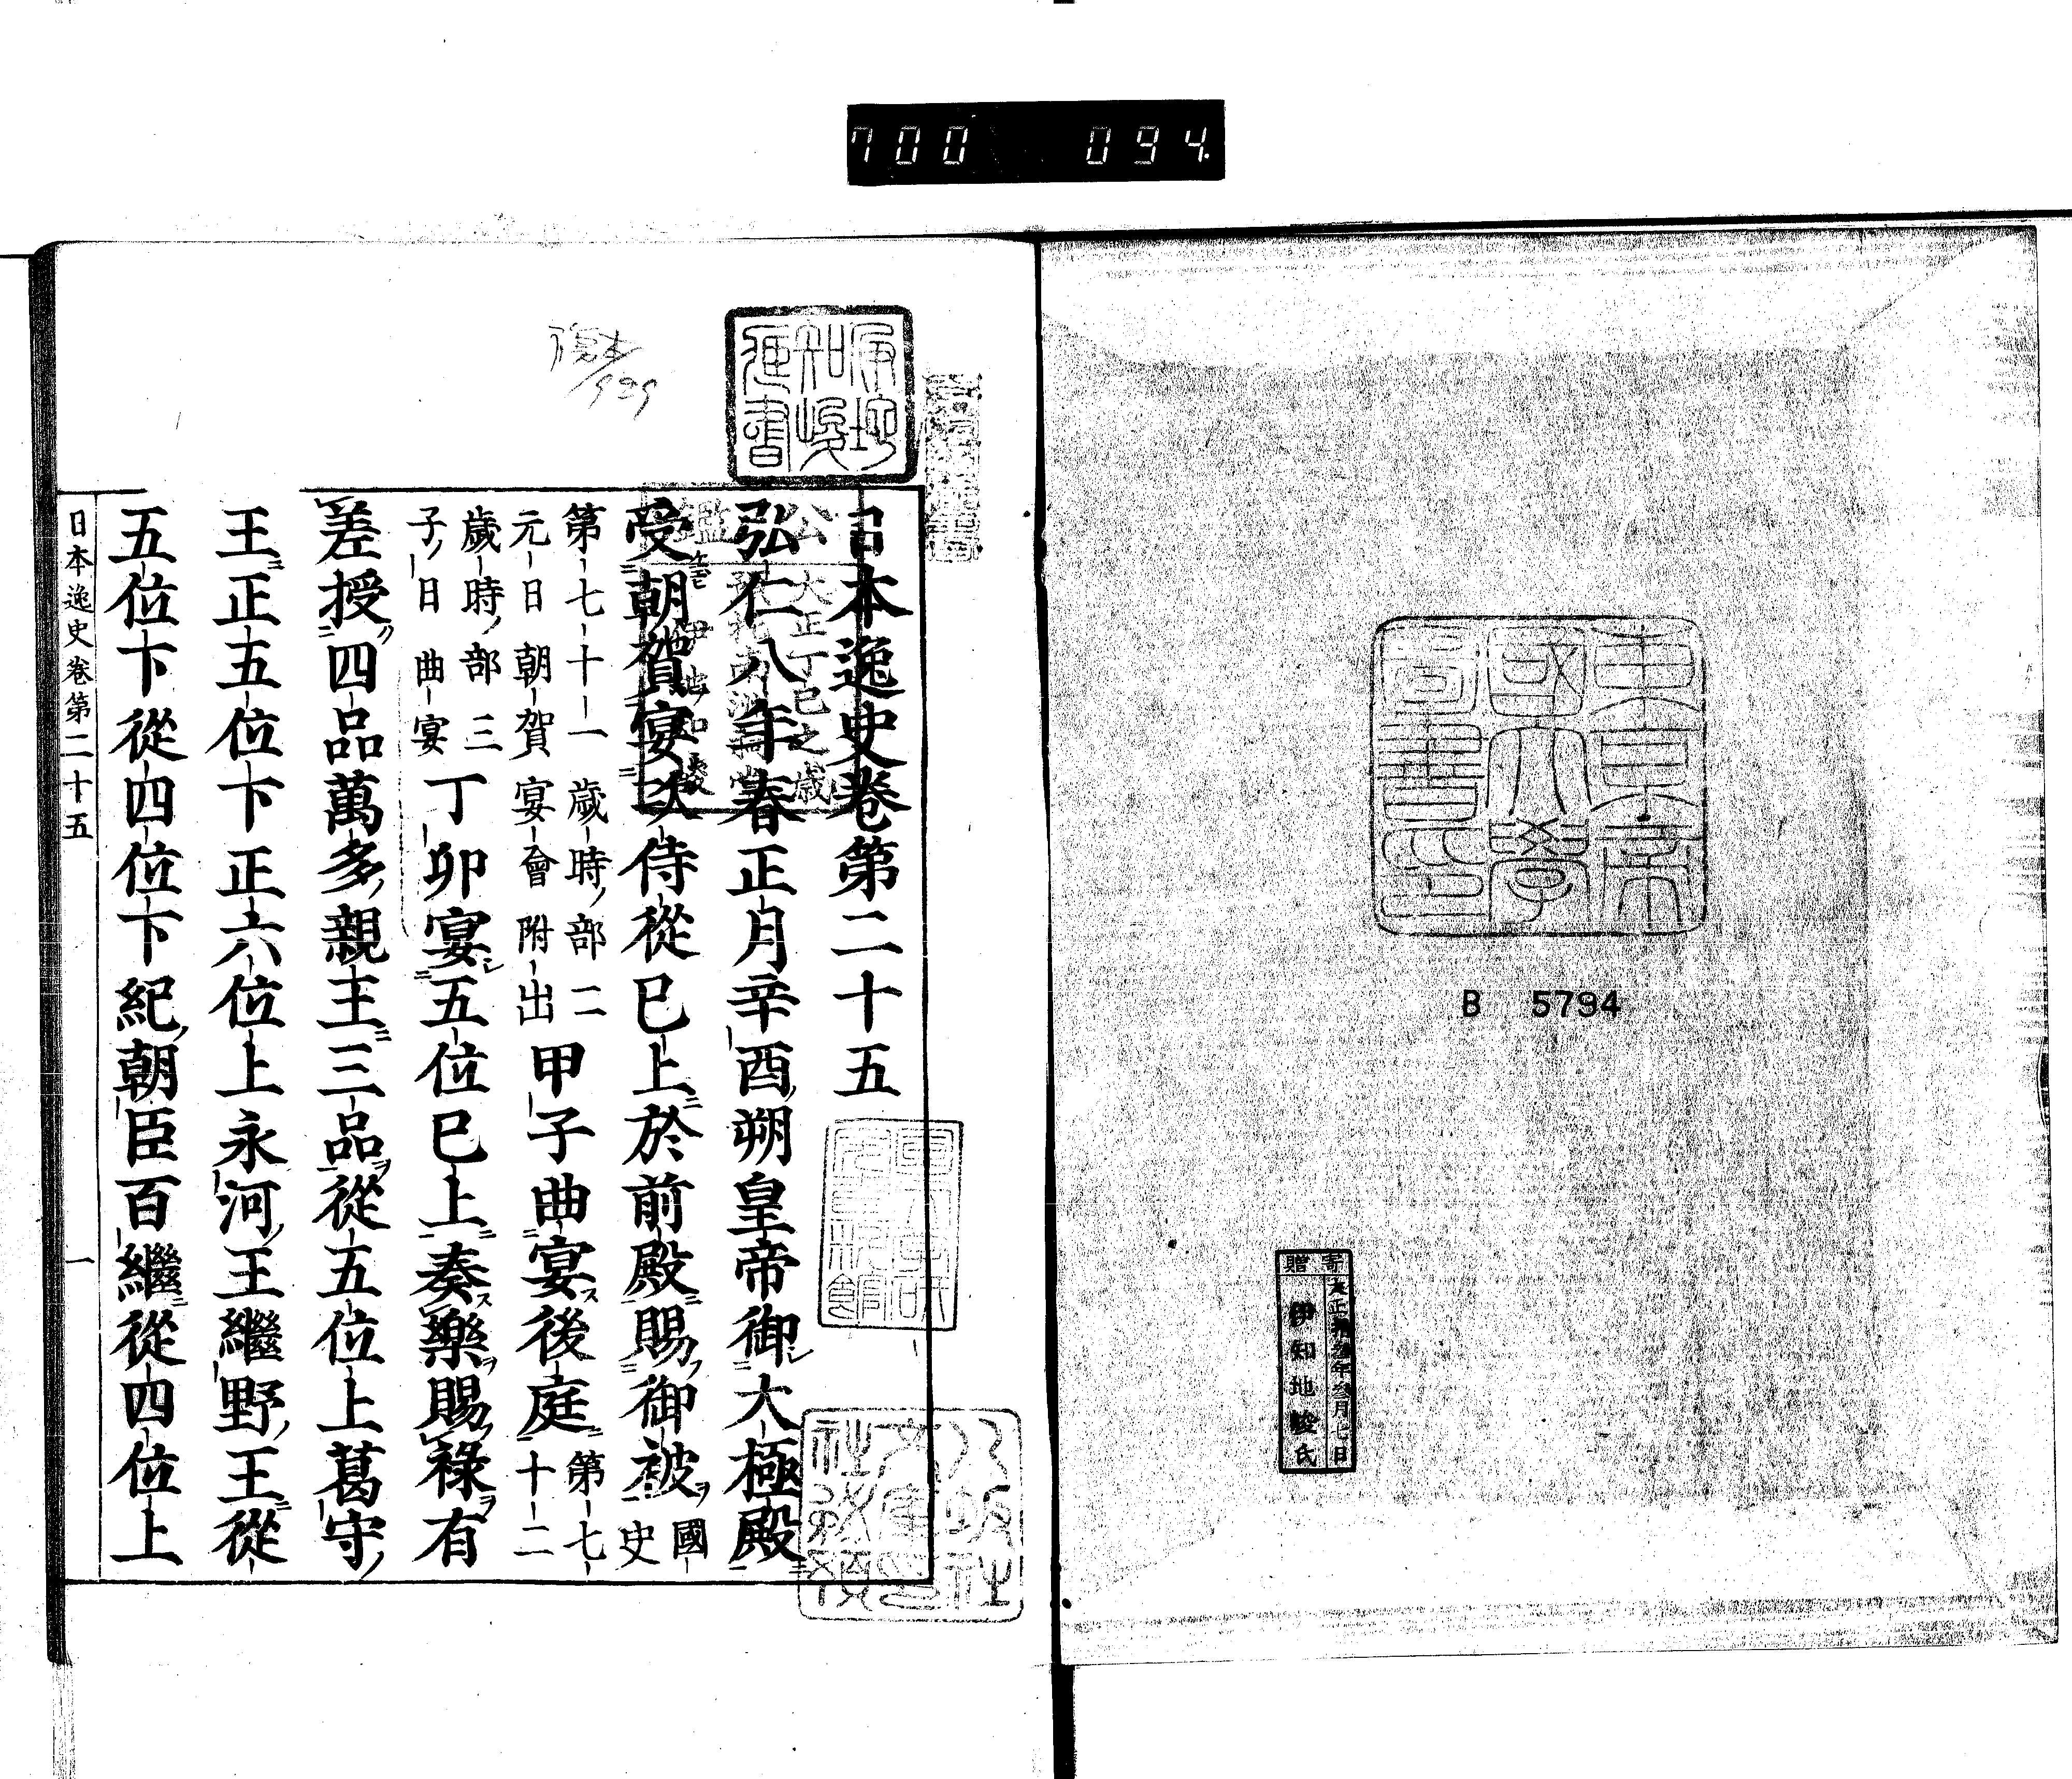 700 094.
東京帝
國大學
圖書印
B 5794
寄贈
大正拾參年叁月七日
伊知地峻氏
日本逸史卷第二十五
弘仁八年春正月辛酉朔皇帝御大極殿
受朝賀宴次侍從已上於前殿賜御被國史
第七十一歲時部二
元日朝賀宴會附出
甲子曲宴後庭第七十二
歲時部三
子日曲宴
丁卯宴五位已上奏樂賜祿有
差授四品萬多親王三品從五位上葛守
王正五位下正六位上永河王繼野王從
五位下從四位下紀朝臣百繼從四位上
日本逸史卷第二十五
一